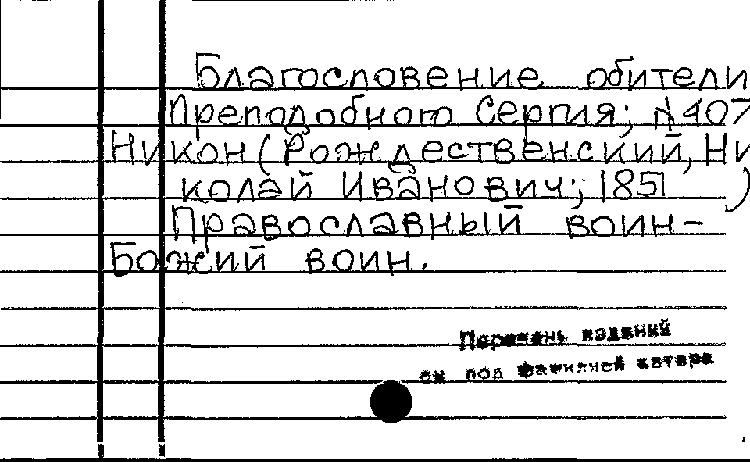 Благословение обители
Преподобного Сергия; А407
Никон (Рождественский, Ни
колай Иванович; 1851 )
Православный воин-
Божий воин.
Перечень изданий
см под фамилией автора